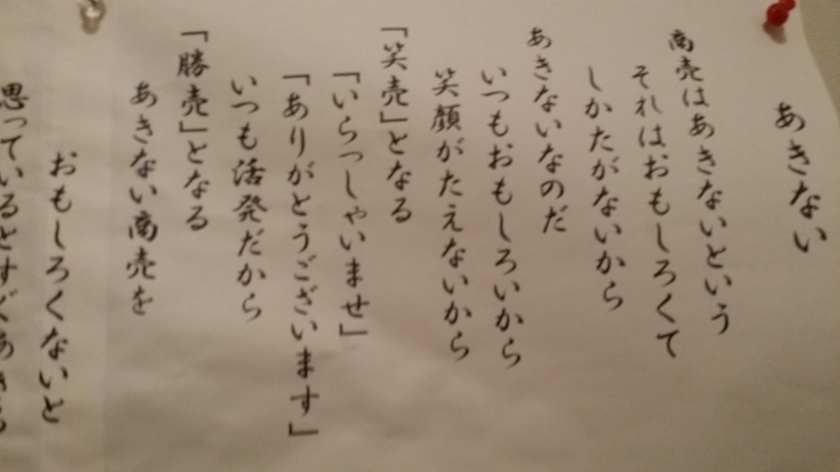 あきない
商売はあきないという
それはおもしろくて
しかたがないから
あきないなのだ
いつもおもしろいから
笑顔がたえないから
「笑売」となる
「いらっしゃいませ」
「ありがとうございます」
いつも活発だから
「勝売」となる
あきない商売を
おもしろくないと
思っているとすぐあきる